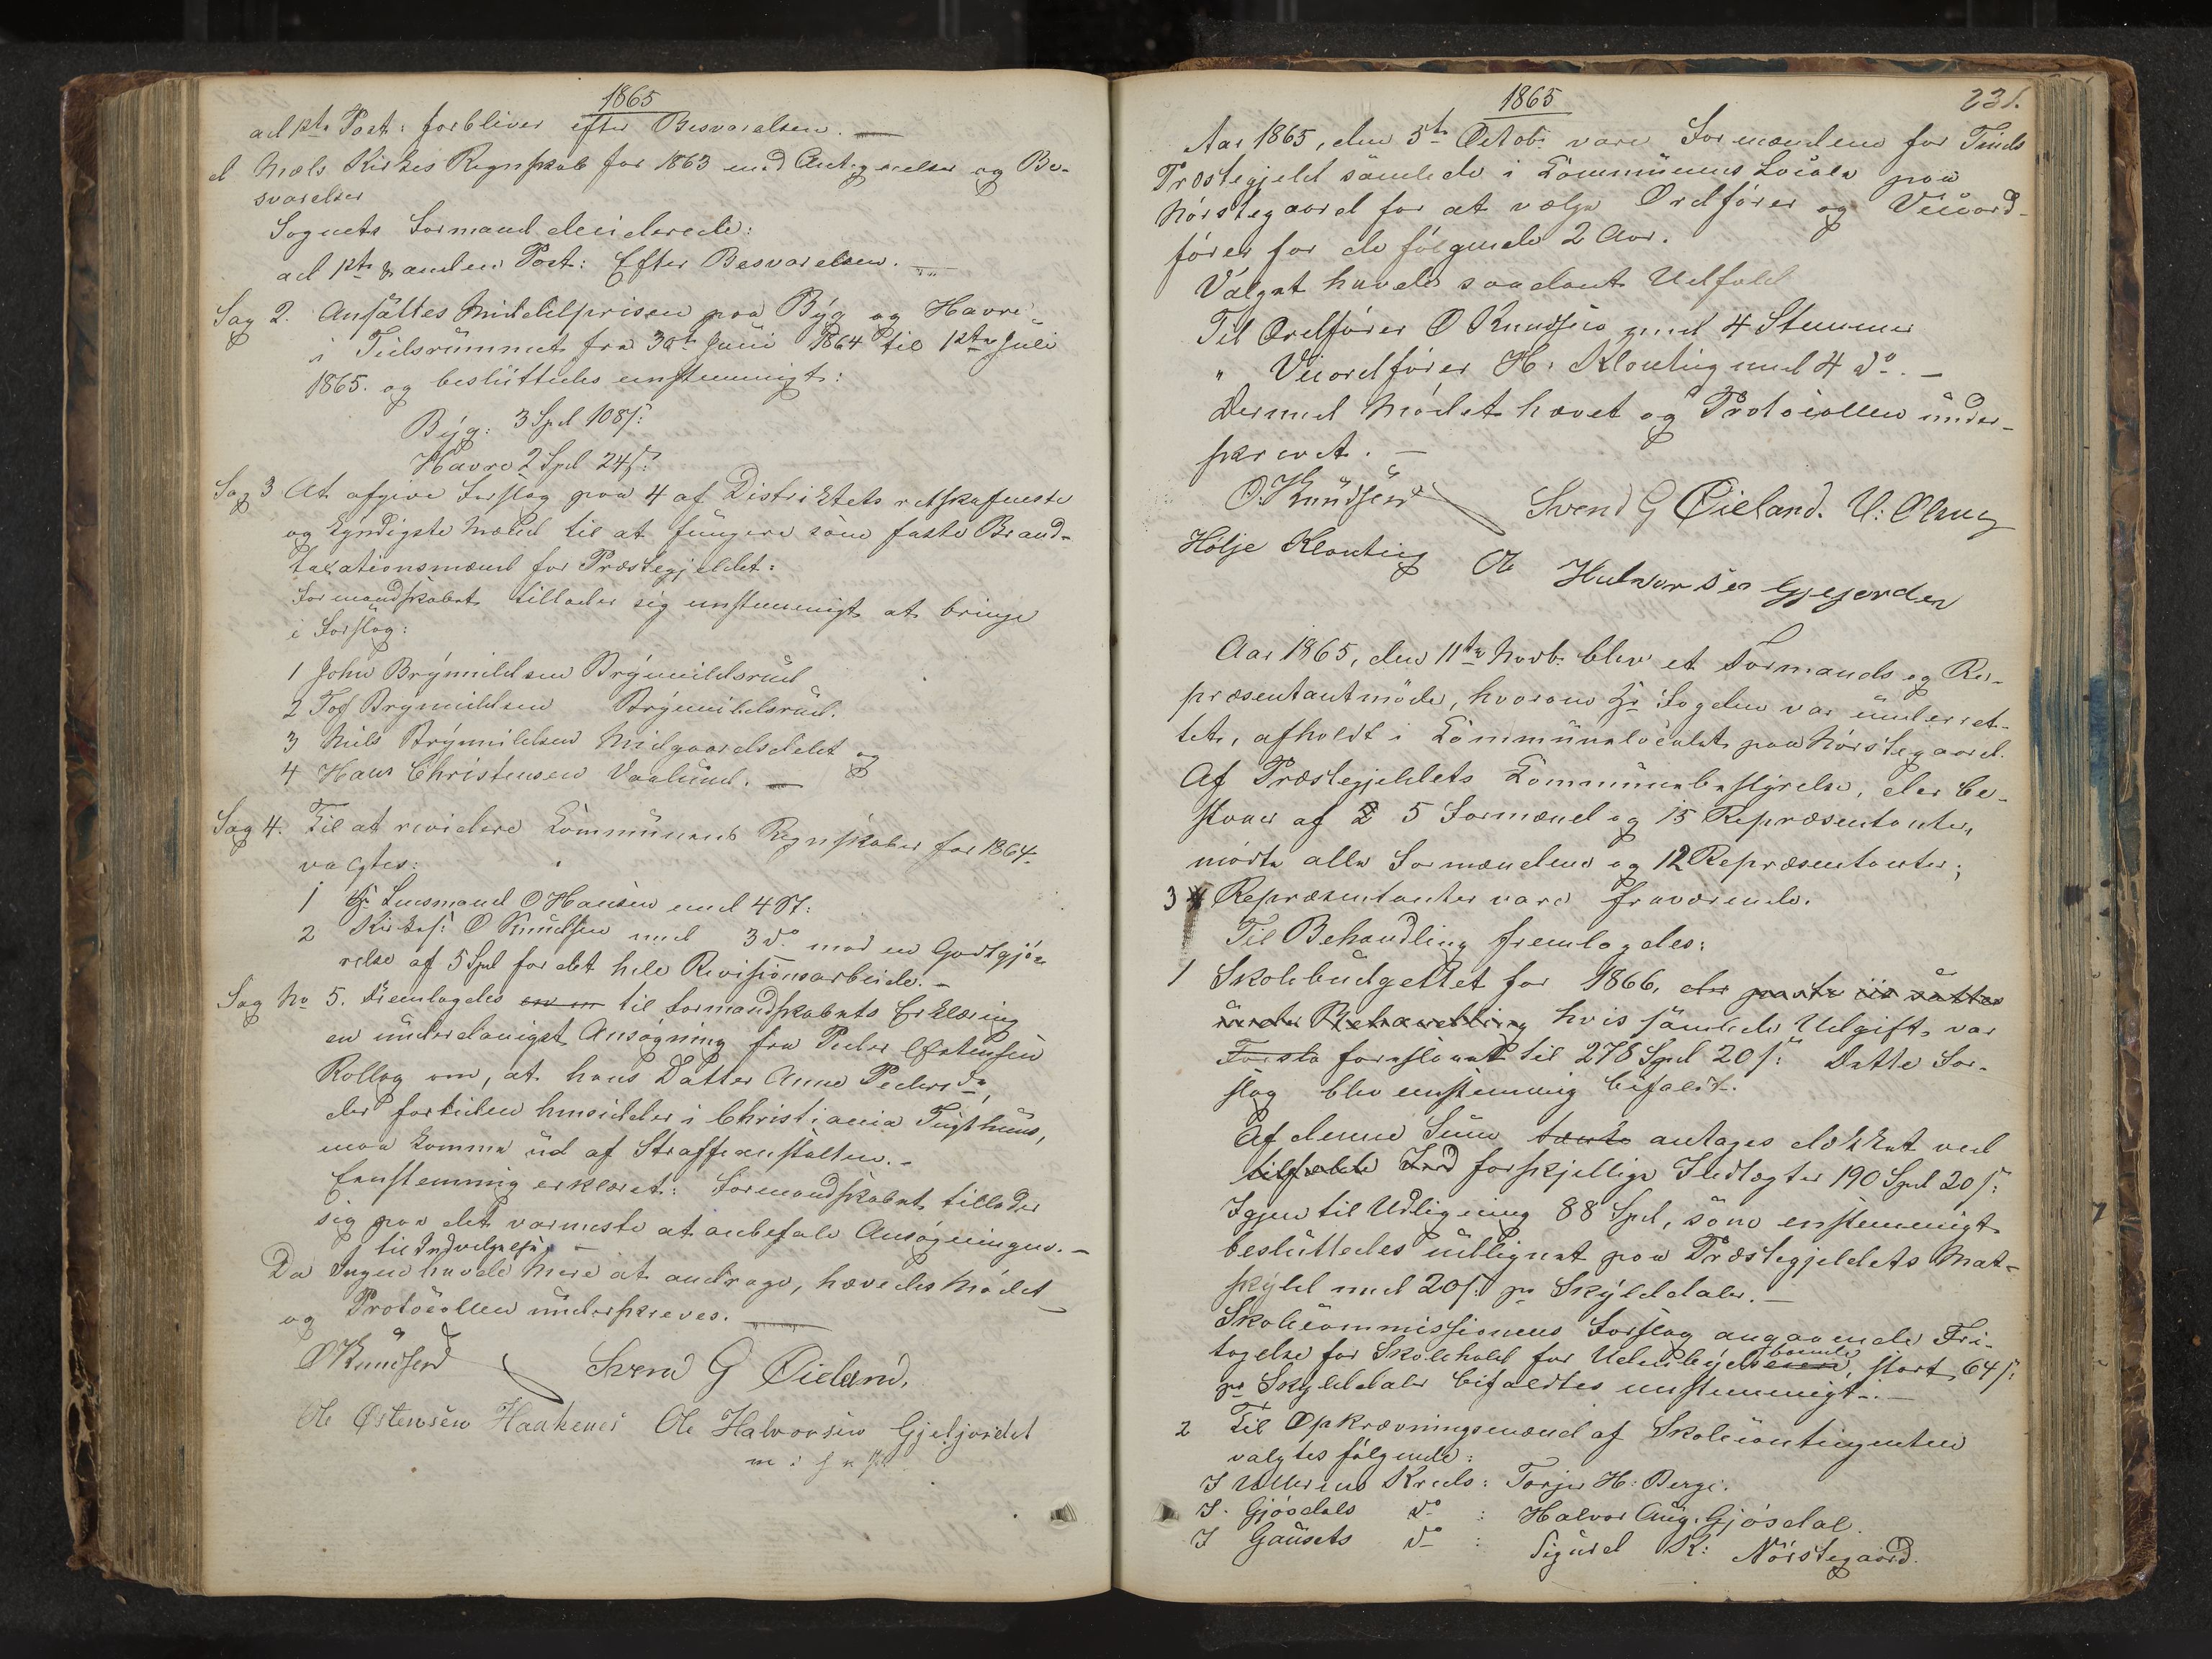 1865
ad 1ste Post: forbliver efter Besvarelsen.
d Mæls Kirkes Regnskab for 1863 med Antegnelser og Be-
svarelser
Sognets Formænd deciderede:
ad 1ste & anden Post: Efter Besvarelsen.
Sag 2. Ansattes Middelprisen paa Byg og Havre
i Tidsrummet fra 30te Juni 1864 til 1ste Juli
1865. og besluttedes eenstemmigt:
Byg: 3 Spd 108 s:
Havre 2 Spd 24 s:
Sag 3 At afgive Forslag paa 4 af Distriktets retskafneste
og kyndigste Mænd til at fungere som faste Brand-
taxationsmænd for Præstegjeldet:
Formandskabet tillader sig enstemmigt at bringe
i Forslag:
1 John Brynnildsen Brynnildsrud
2 Tof Brynnildsen Brynnildsrud.
3 Niels Brynnildsen Midgaardsdelet og
4 Hans Christensen Vaalund.
Sag 4. Til at revidere Communens Regnskaber for 1864
valgtes:
1 Hr Lensmand O Hansen med 4 St:
2 Kirkes: O Knudsen med 3 do mod en Godtgjö-
relse af 5 Spd for det hele Revisionsarbeide.
Sag No 5. Fremlagdes en un til Formandskabets Erklæring
en underdanigst Ansögning fra Peder Østensen
Rollag om, at hans Datter Anne Pedersdr,
der fortiden hensidder i Christiania Tugthuus,
maa komme ud af Straffeanstalten.
Eenstemmig erklæret: Formandskabet tillader
sig paa det varmeste at anbefale Ansögningen.
til Indvilgelse
Da Ingen havde mere at andrage, hævedes Mödet
og Protocollen underskreves.
O Knudsen Svend G Øieland,
Ole Østensen Haakenes Ole Halvorsen Gjeljordet
m: f: p:
1865
231.
Aar 1865, den 5te Octob: vare Formændene for Tinds
Præstegjeld samlede i Communens Locale paa
Nörstegaard for at vælge Ordförer og Viceord-
förer for de fölgende 2 Aar.
Valget havde saadant Udfald
Til Ordförer O Knudsen med 4 Stemmer
" Viceordförer H: Klonteig med 4 do.
Dermed Mödet hævet og Protocollen under-
skrevet.
O. Knudsen Svend G Øieland. U: Olsen
Hölje Klonteig Ole Halvorsen Gjejorden
Aar 1865, den 11te Novb. blev et Formands og Re-
præsentantmöde, hvorom Hr Fogden var underret-
tet, afholdt i Communelocalet paa Nörstegaard.
Af Præstegjeldets Communebestyrelse, der be-
staaer af 2 5 Formænd og 15 Repræsentanter,
mödte alle Formændene og 12 Repræsentanter;
3 4 Repræsentanter vare fraværende.
Til Behandling fremlagdes:
1 Skolebudgettet for 1866, der
under Behandling hvis samlede Udgift var
Forsla foreslaaet til 278 Spd 20 s: Dette For-
slag blev enstemmig bifaldt.
Af denne Sum antages dækket ved
tilfælde Ind forskjellige Indtægter 190 Spd 20 s:
Igjen til Udligning 88 Spd, som enstemmigt
besluttedes udlignet paa Præstegjeldets Mat-
skyld med 20 s: pr Skylddaler.
Skolecommissionens Forslag angaaende Fri-
tagelse for Skolehold for Udenbygds boende, stort 64 s:
pr Skylddaler bifaldtes enstemmigt.
2 Til Opkrævningsmænd af Skolecontingenten
valgtes fölgende:
I Kreds: Torjer H: Berge.
I Gjösdals do : Halvor Aug. Gjösdal.
I Gausets do : Sigurd K: Nörstegaard.